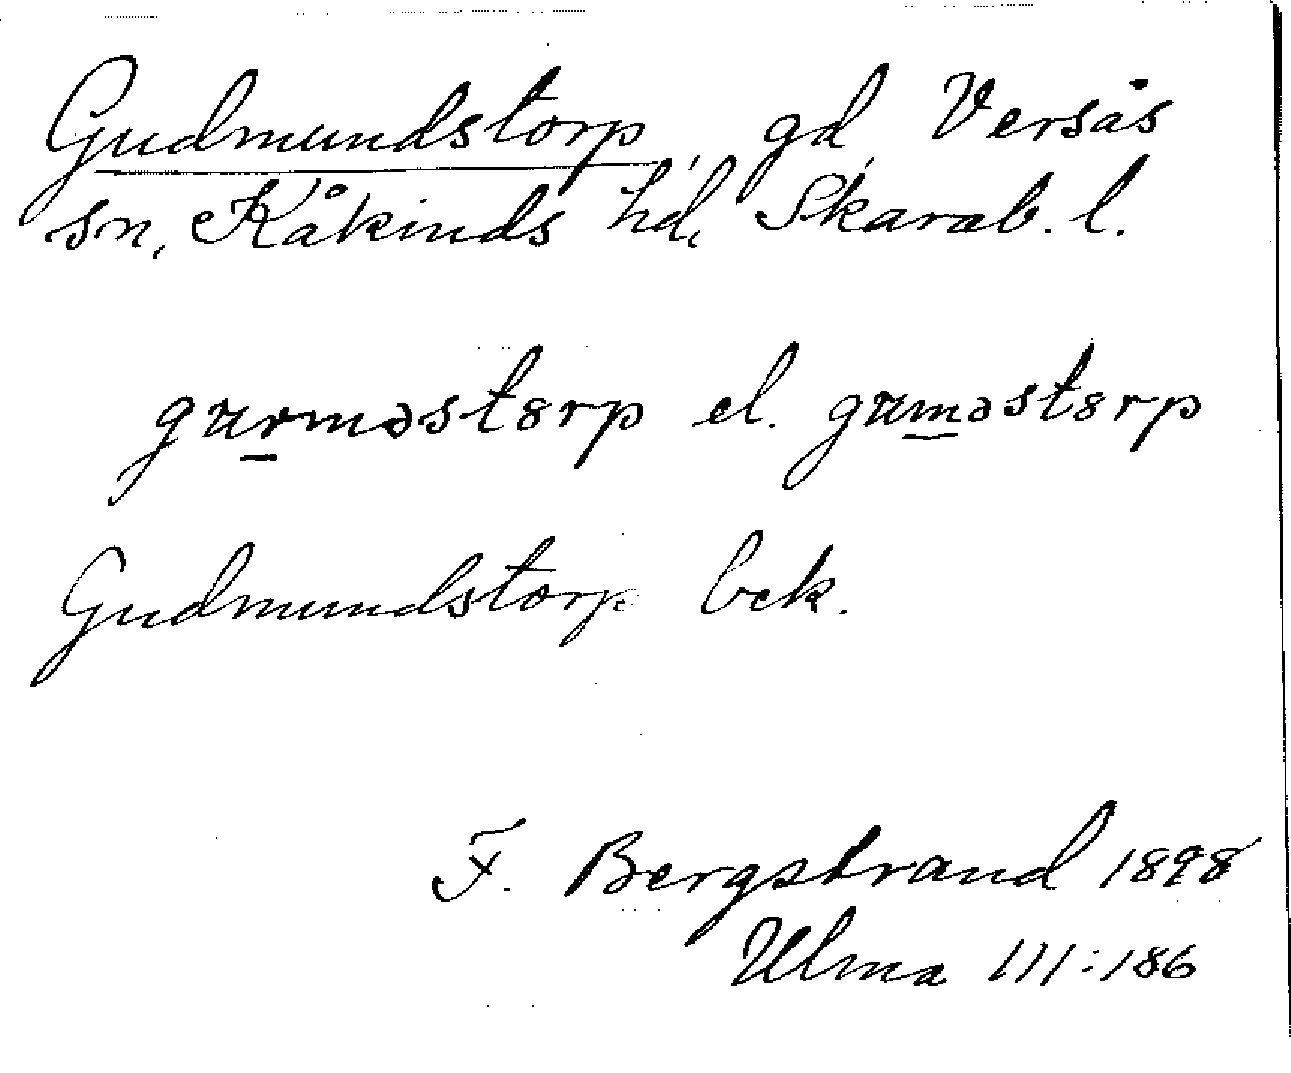 Gudmundstorp, gd, Versås
sn, Kåkinds hd, Skarab. l.
gurməst8rp el. guməst8rp
Gudmundstorp bek.
F. Bergstrand 1898
Ulma III:186